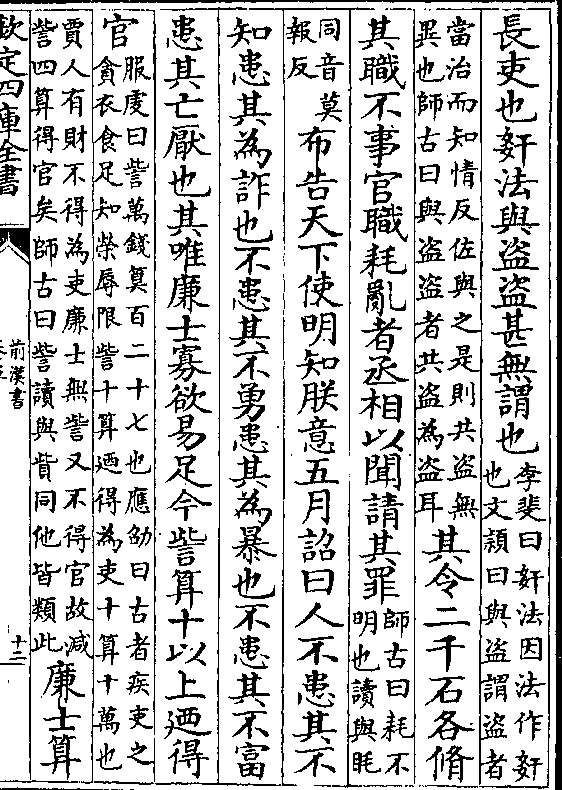 長吏也奸法與盜盜甚無謂也
李斐曰奸法因法作奸
也文穎曰與盜謂盜者
當治而知情反佐與之是則共盜無
異也師古曰與盜盜者共盜為盜耳
其令二千石各脩
其職不事官職耗亂者丞相以聞請其罪
師古曰耗不
明也讀與眊
同音莫
報反
布告天下使明知朕意五月詔曰人不患其不
知患其為詐也不患其不勇患其為暴也不患其不富
患其亡厭也其唯廉士寡欲易足今訾算十以上廼得
官
服虔曰訾萬錢算百二十七也應劭曰古者疾吏之
貪衣食足知榮辱限訾十算廼得為吏十算十萬也
賈人有財不得為吏廉士無訾又不得官故減
訾四算得官矣師古曰訾讀與貲同他皆類此
廉士算
欽定四庫全書
前漢書
卷五
十二